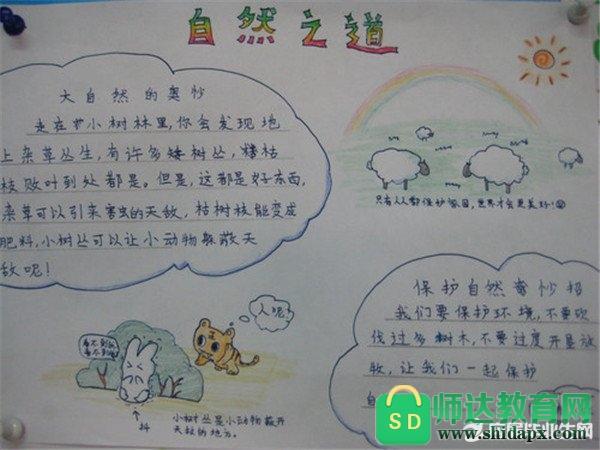 自然之道
大自然的奥妙
走在小树林里,你会发现地
上杂草丛生,有许多矮树丛,枯
枝败叶到处都是。但是,这都是好东西,
杂草可以引来害虫的天敌,枯树枝能变成
肥料,小树丛可以让小动物躲避天
敌呢!
只有人人都保护家园,世界才会更美好!
保护自然奇妙招
我们要保护环境,不要砍
伐过多树木,不要过度开垦放
牧,让我们一起保护
自
人呢?
看不到我
看不到
抖
小树丛是小动物躲开
天敌的地方。
SD
师达教育网
www.shidapx.com